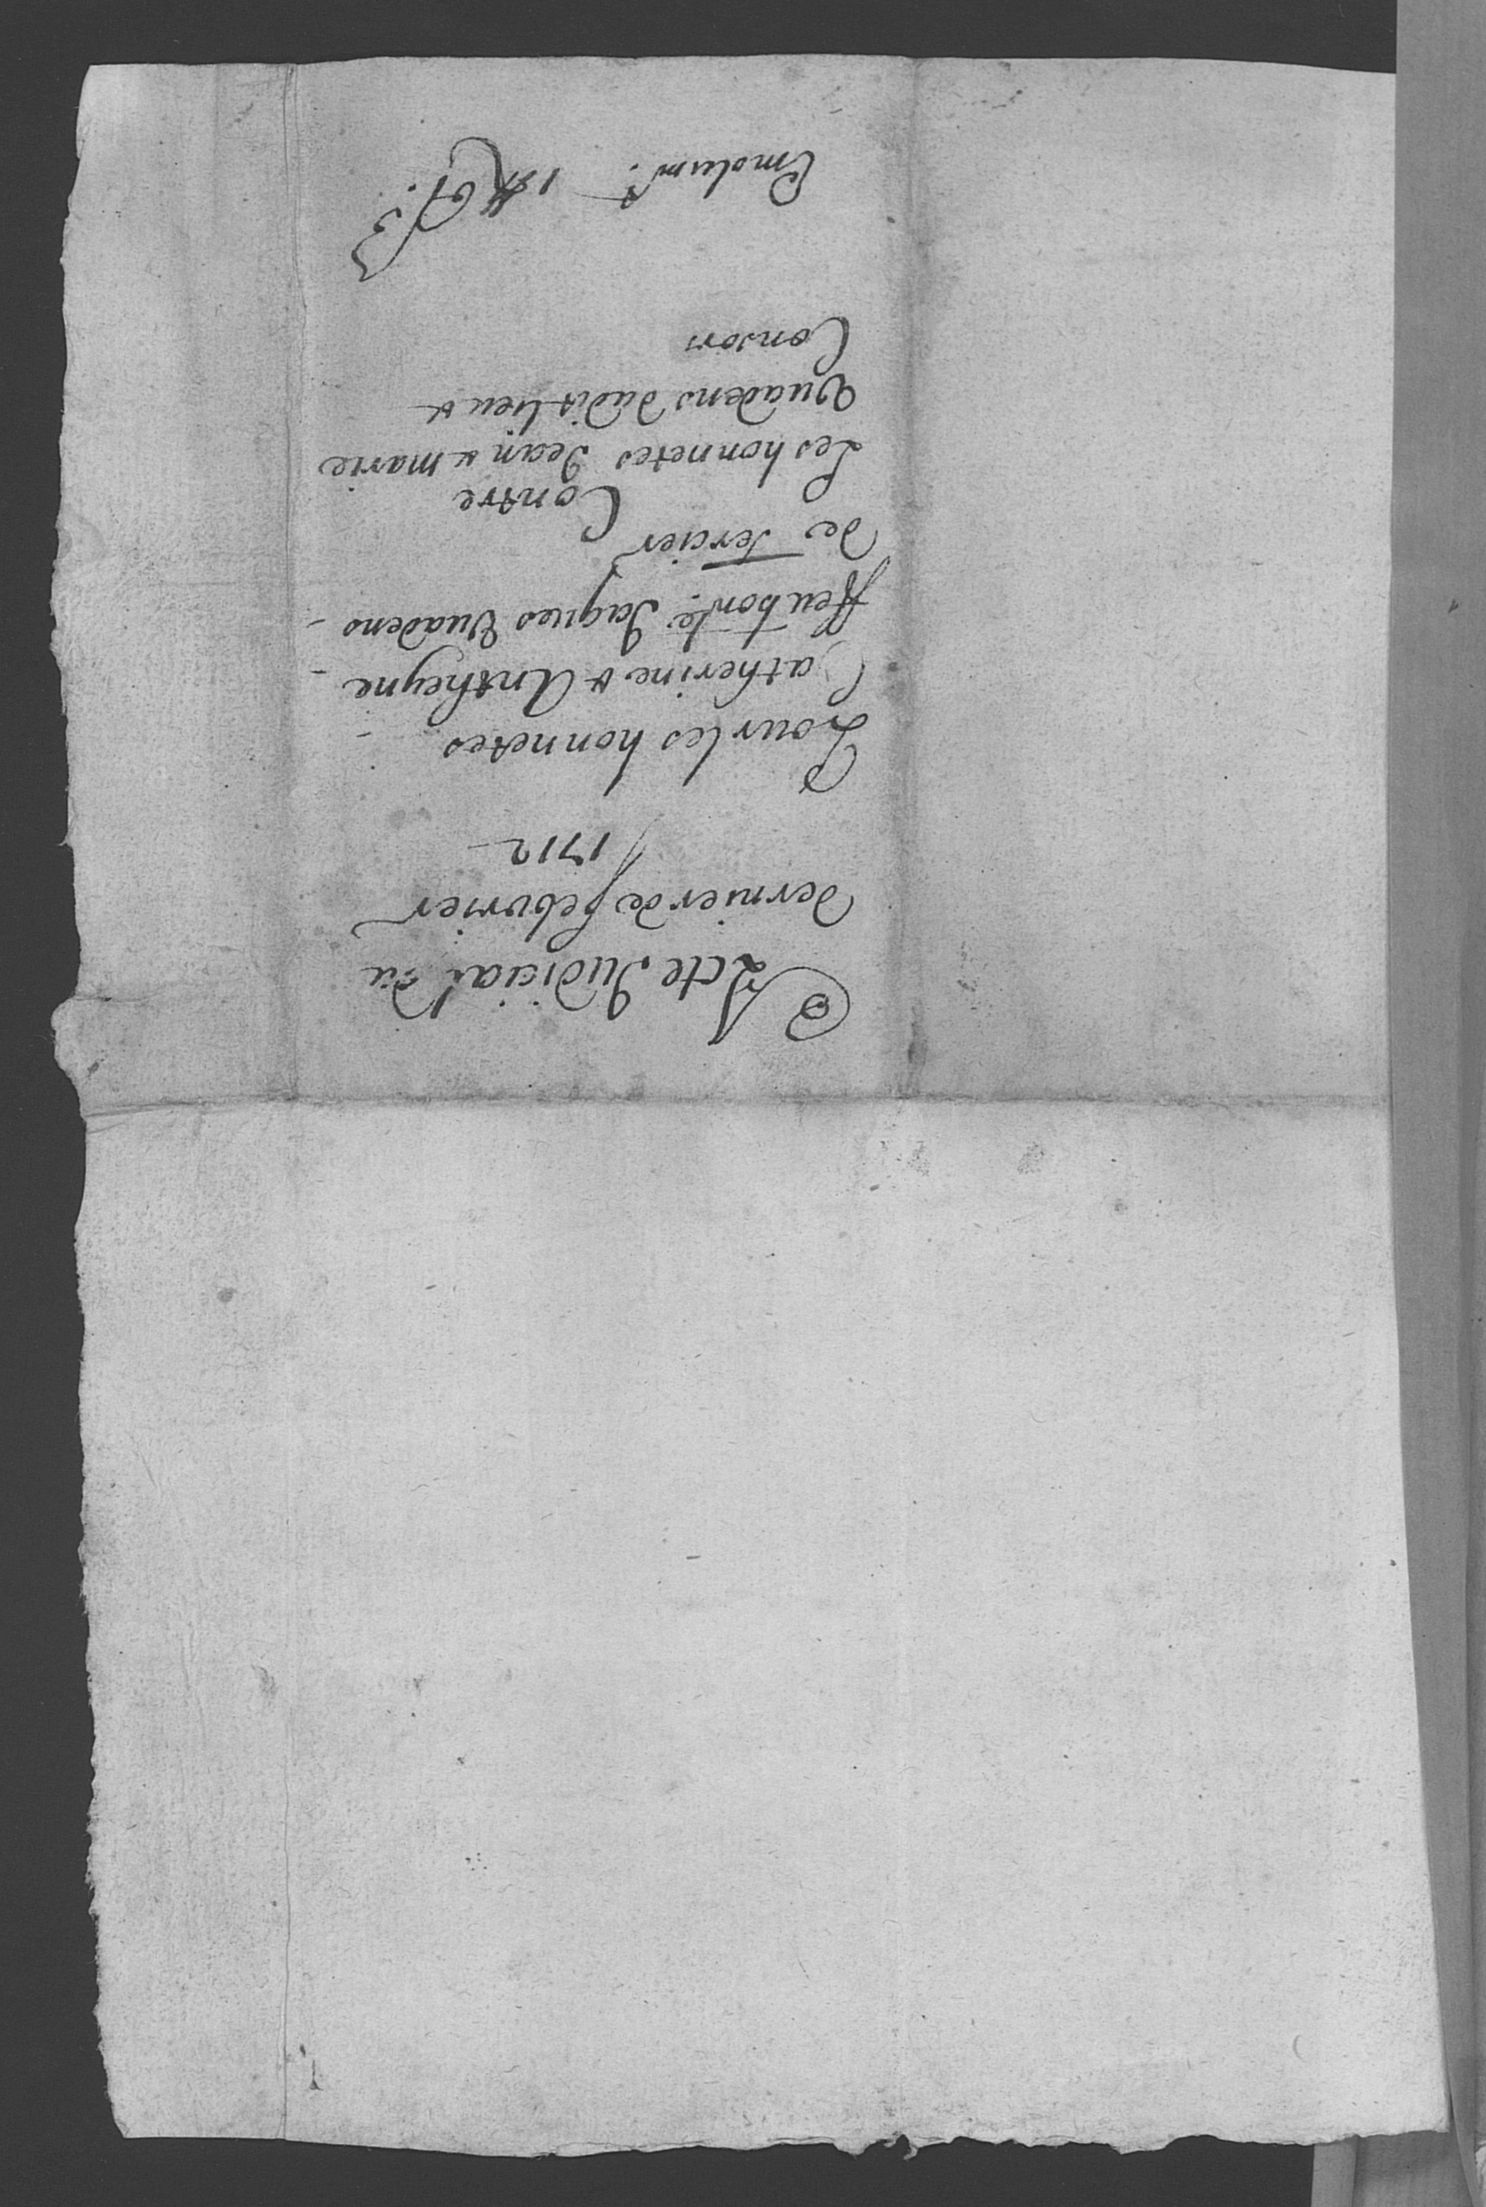 Acte Judicial du
dernier de febvrier
1712
Pour les honnetes
Catherine & Antheyne
ffeu hon.te Jaques Vuadens
de Fercier
Contre
Les honnetes Jean & marie
Vuadens dudit lieu &
Consors
Emolum.t 1